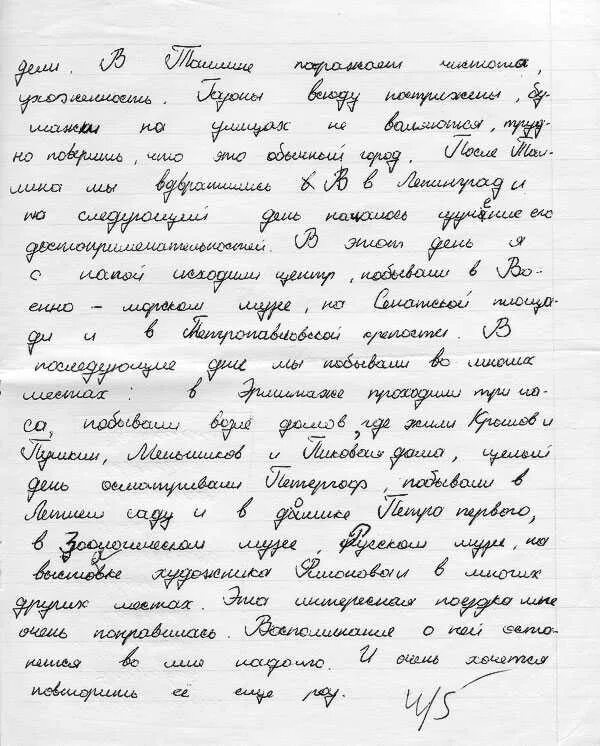 дели. В Таллине поражает чистота,
ухоженность. Газоны всюду пострижены, бу-
мажки на улицах не валяются, труд-
но поверить, что это обычный город. После Тал-
лина мы возвратились в Ленинград и
на следующий день началось изучение его
достопримечательностей. В этот день я
с папой исходили центр, побывали в Во-
енно – морском музее, на Сенатской площа-
ди и в Петропавловской крепости. В
последующие дни мы побывали во многих
местах: в Эрмитаже проходили три ча-
са, побывали возле домов, где жили Крылов и
Пушкин, Меньшиков и Пиковая дама, целый
день осматривали Петергоф, побывали в
Летнем саду и в домике Петра первого,
в Зоологическом музее, Русском музее, на
выставке художника Филонова и в многих
других местах. Эта интересная поездка мне
очень понравилась. Воспоминание о ней оста-
нется во мне надолго. И очень хочется
повторить её еще раз.
4/5